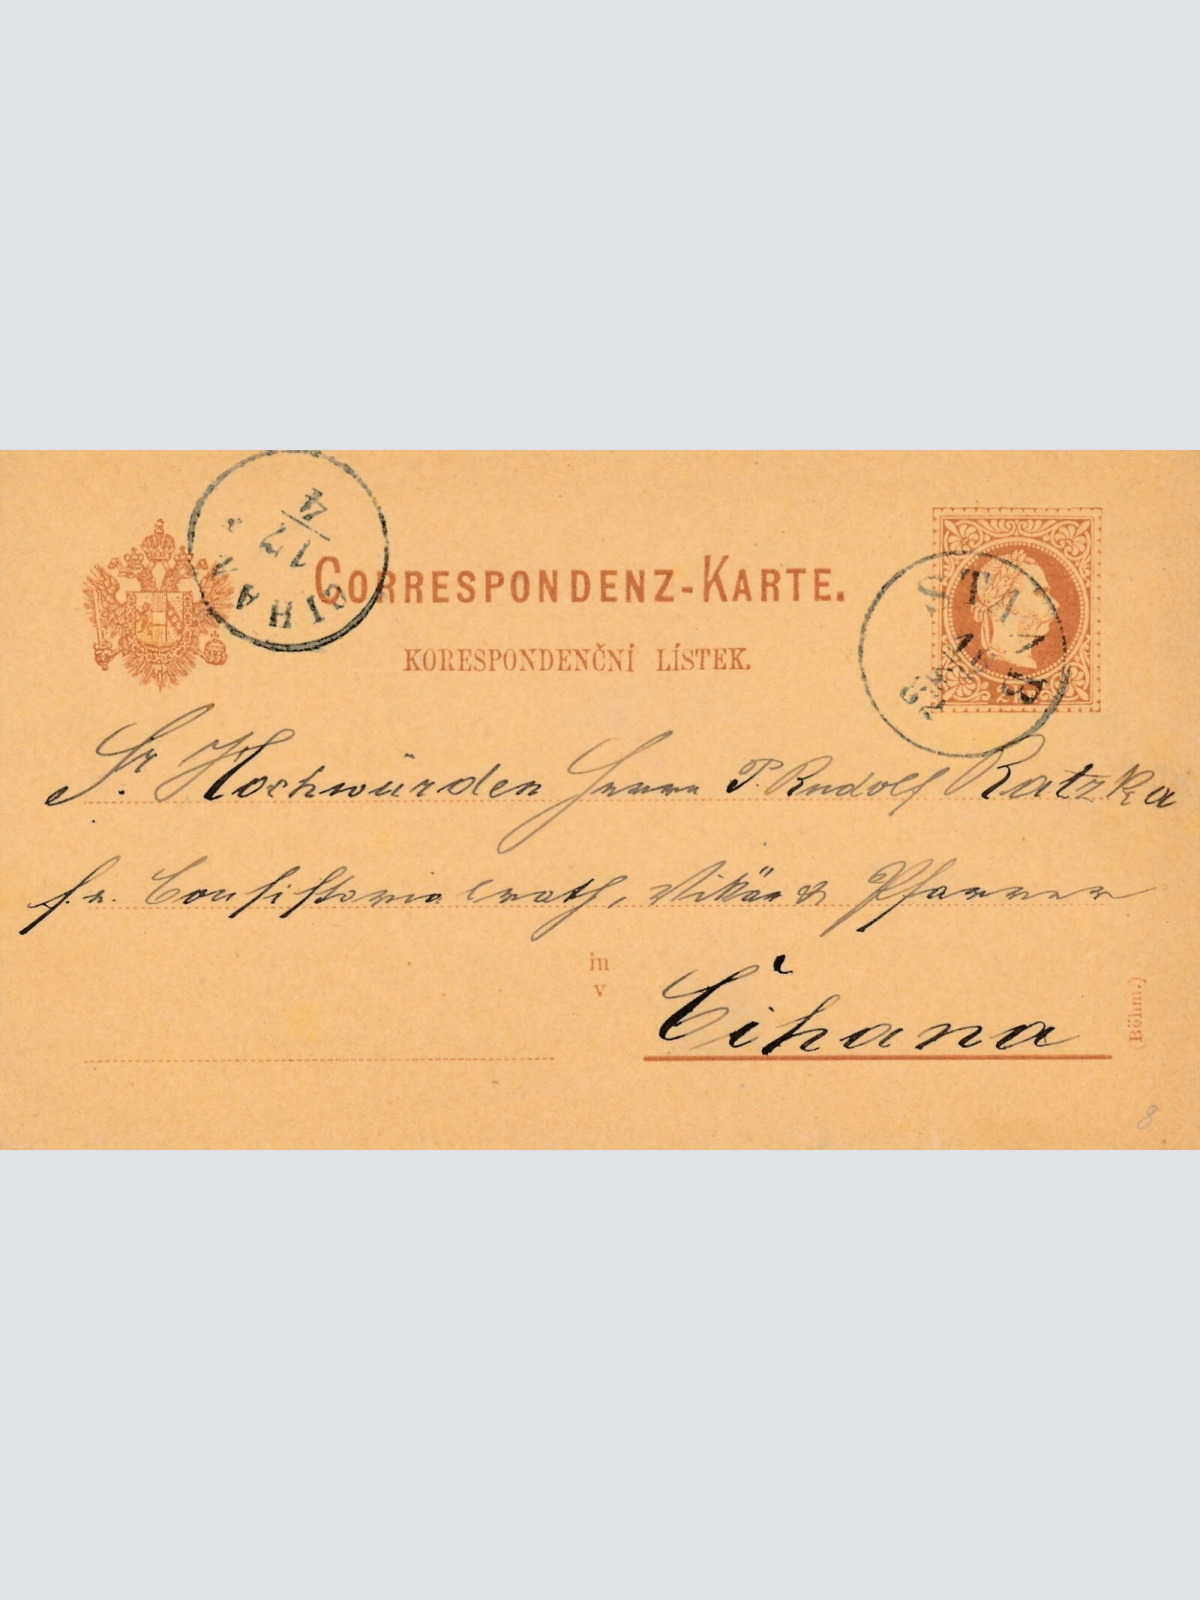 CORRESPONDENZ-KARTE.
KORESPONDENČNÍ LÍSTEK.
ČIHANA
17
4
STAB
Sr. Hochwürden Herrn P. Rudolf Ratzka
f. e. Consistorialrath, Vikär & Pfarrer
in
v
Čihana
(Böhm.)
8